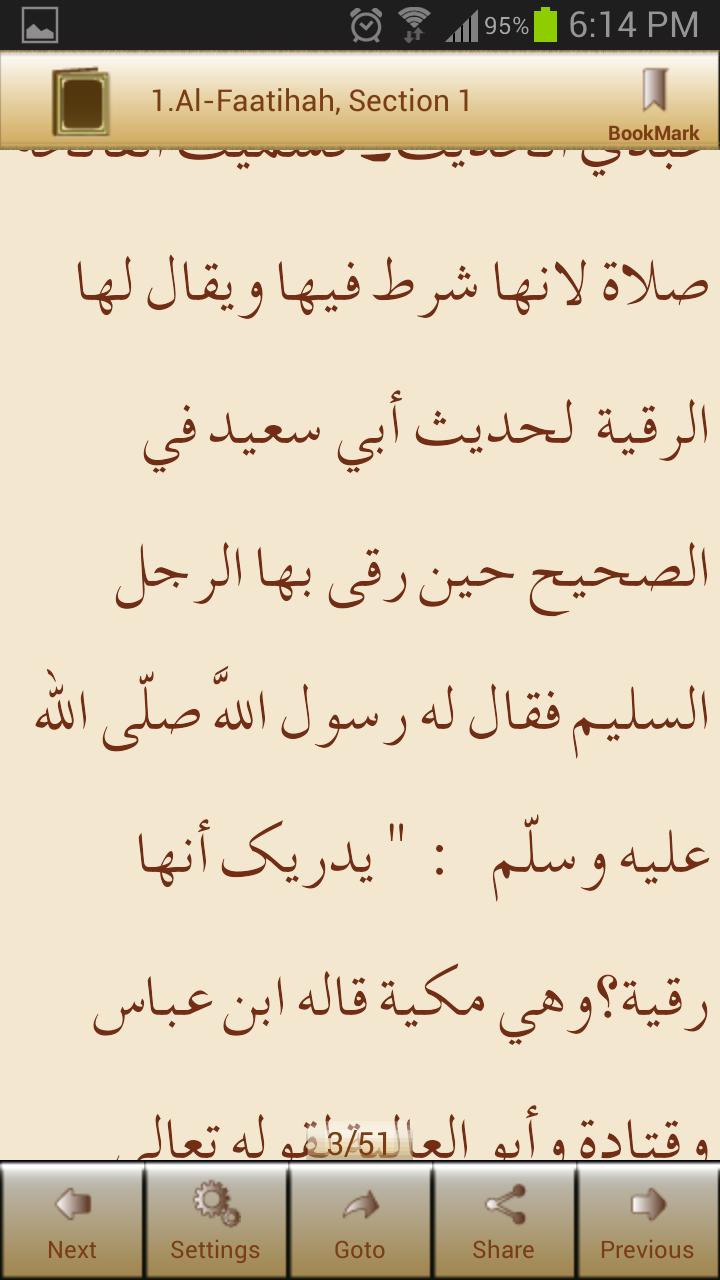 95% 6:14 PM
1.Al-Faatihah, Section 1
BookMark
صلاة لانها شرط فيها ويقال لها
الرقية لحديث أبي سعيد في
الصحيح حين رقى بها الرجل
السليم فقال له رسول اللهَّ صلّى الله
عليه وسلّم : " يدريک أنها
رقية؟وهي مكية قاله ابن عباس
وقتادة وأبو العالية لقوله تعالى
3/51
Next Settings Goto Share Previous